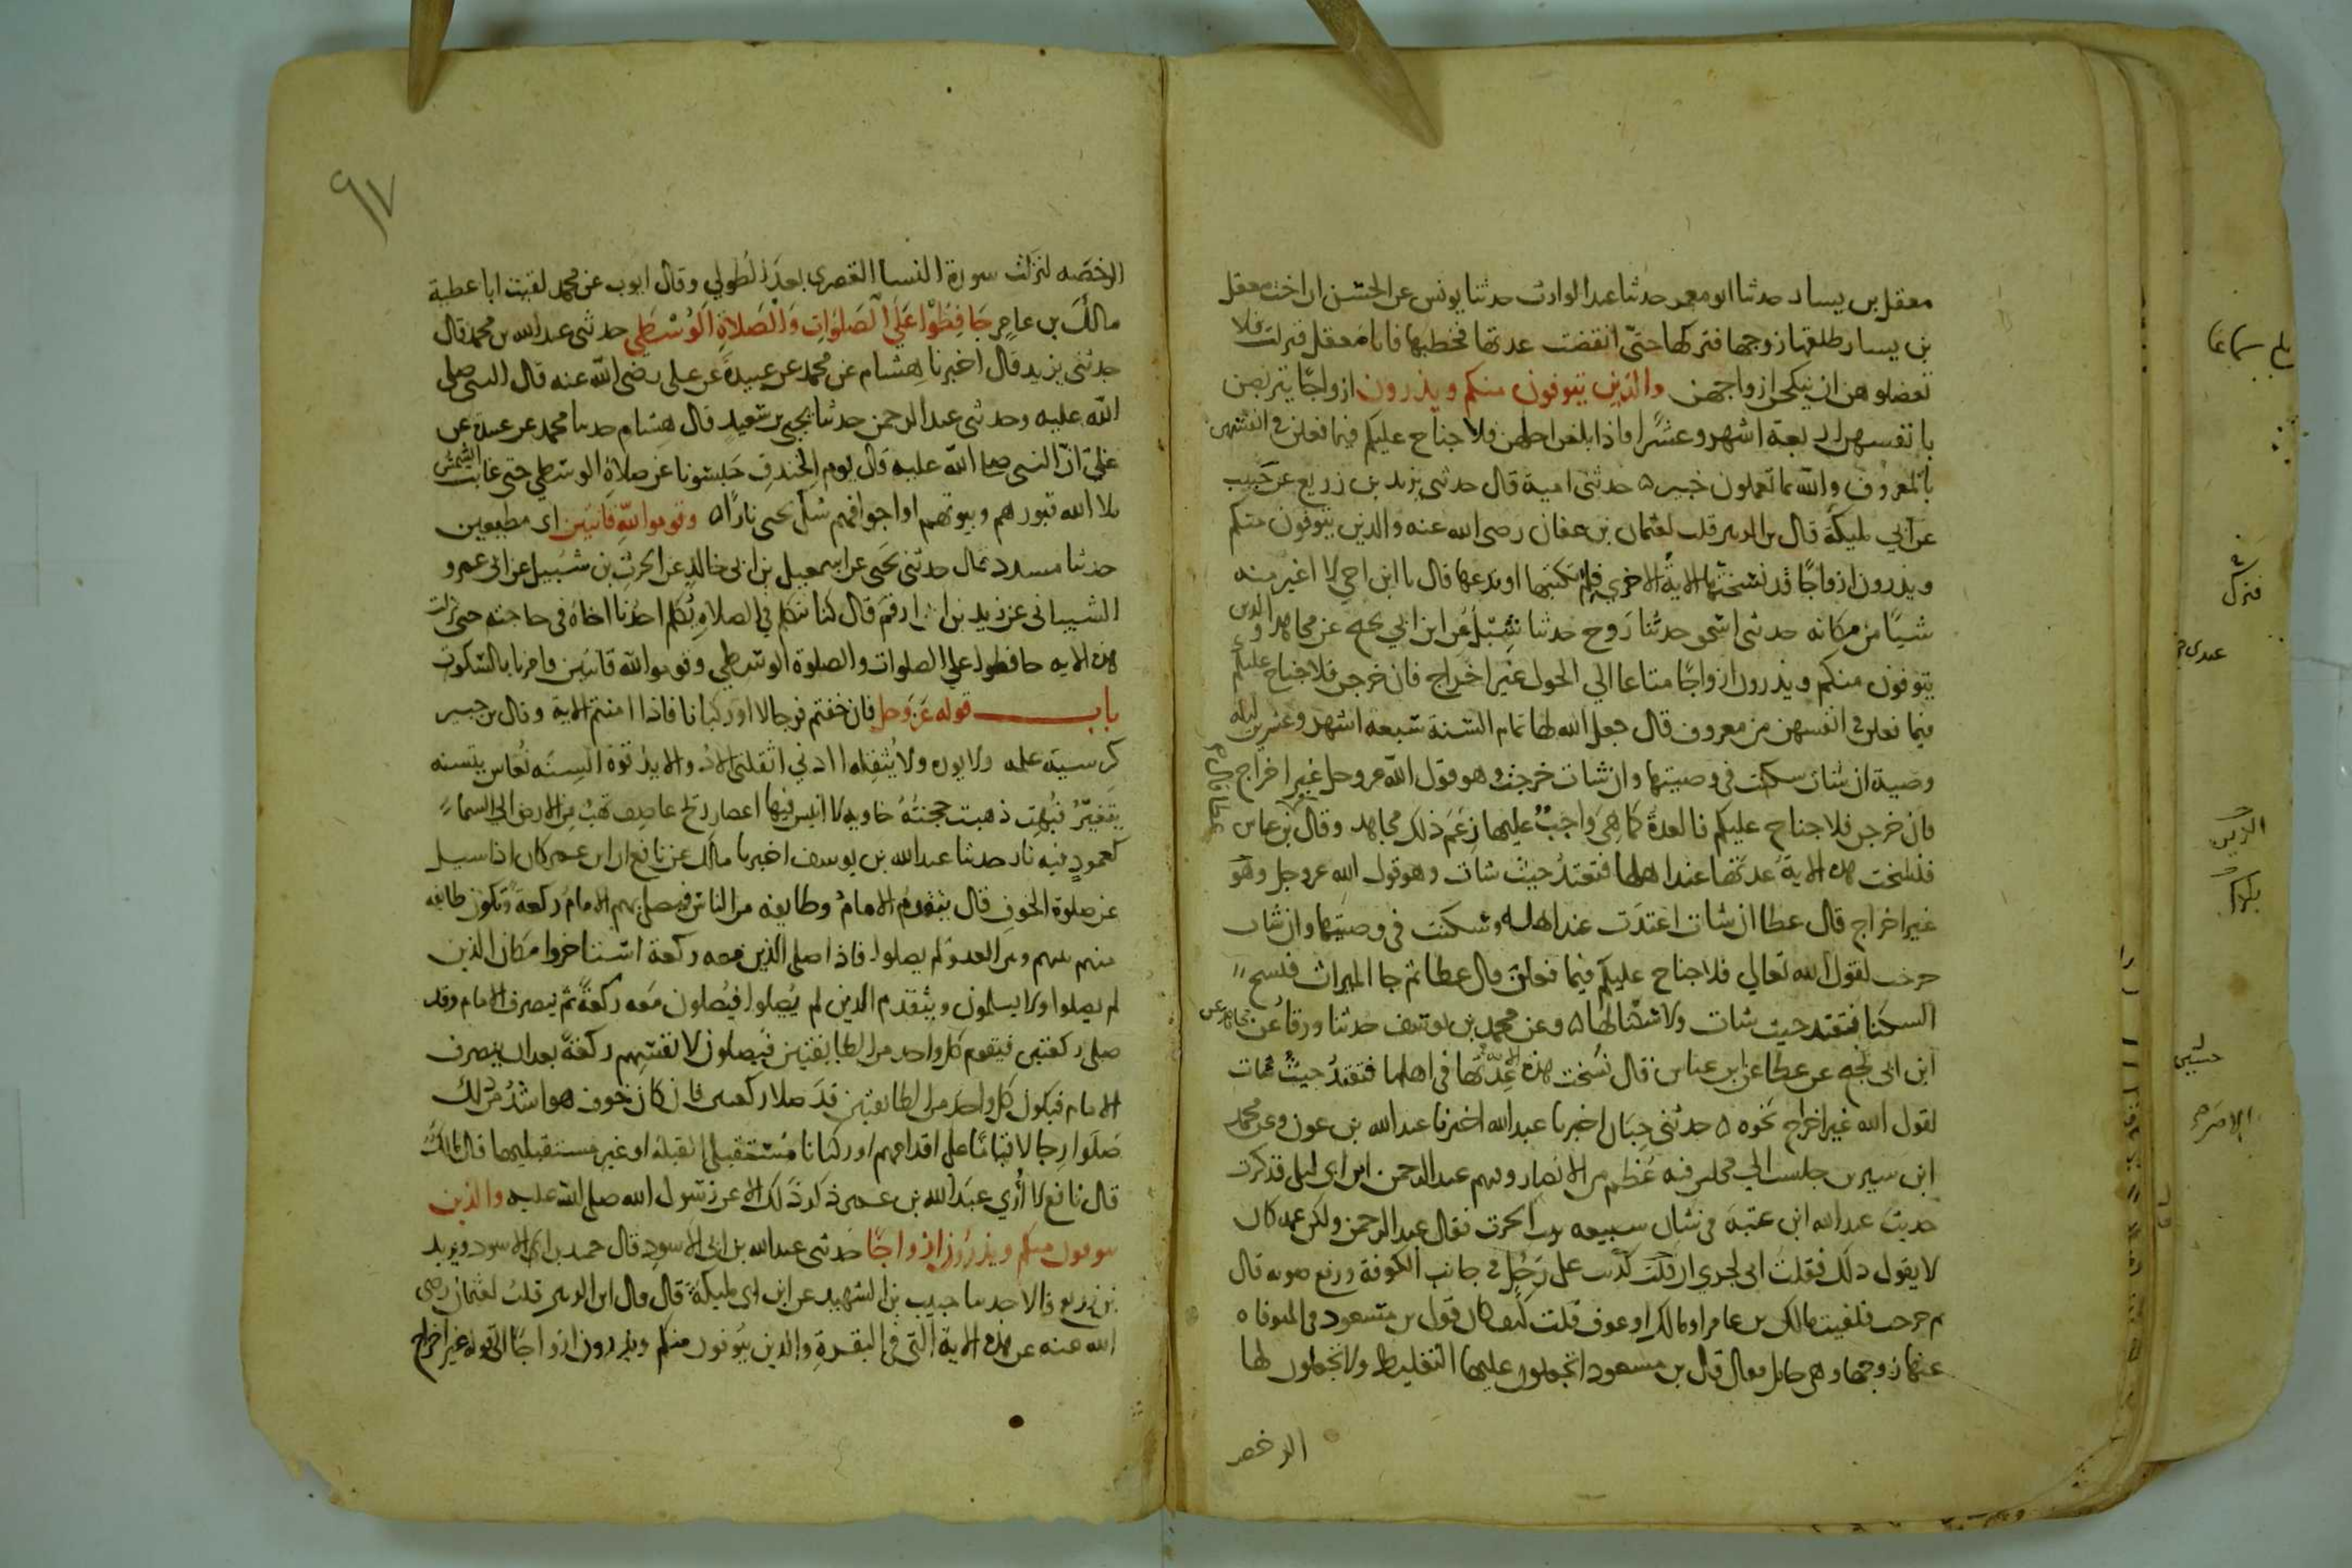 معقل بن يسار حدثنا ابو معمر حدثنا عبد الوارث حدثنا يونس عن الحسن ان اخت معقل
بن يسار طلقها زوجها فتركها حتى انقضت عدتها فخطبها فابا معقل فنزلت فلا
تعضلوهن ان ينكحن ازواجهن والذين يتوفون منكم ويذرون ازواجا يتربصن
بانفسهن اربعة اشهر وعشرا فاذا بلغن اجلهن فلا جناح عليكم فيما فعلن في انفسهن
بالمعروف والله بما تعملون خبير ه حدثني امية قال حدثني يزيد بن زريع عن حبيب
عن ابي مليكة قال بن الزبير قلت لعثمان بن عفان رضي الله عنه والذين يتوفون منكم
ويذرون ازواجا قد نسختها الاية الاخرى فلم تكتبها او تدعها قال يا ابن اخي لا اغير منه
شيئا من مكانه حدثني اسحق حدثنا روح حدثنا شبل عن ابن ابي نجيح عن مجاهد والذين
يتوفون منكم ويذرون ازواجا متاعا الى الحول غير اخراج فان خرجن فلا جناح عليكم
فيما فعلن في انفسهن من معروف قال جعل الله لها تمام السنة سبعة اشهر وعشرين ليله
وصية ان شات سكنت في وصيتها وان شات خرجت وهو قول الله عز وجل غير اخراج
فان خرجن فلا جناح عليكم فالعدة كما هي واجب عليها زعم ذلك مجاهد وقال بن عباس
فنسخت هذه الاية عدتها عند اهلها فتعتد حيث شات وهو قول الله عز وجل وهو
غير اخراج قال عطا ان شات اعتدت عند اهله وسكنت في وصيتها وان شات
خرجت لقول الله تعالي فلا جناح عليكم فيما فعلن قال عطا ثم جا الميراث فنسخ
السكنا فتعتد حيث شات ولا سكنا لها ه وعن محمد بن يوسف حدثنا ورقا عن مجاهد عن
ابن ابي نجيح عن عطا عن ابن عباس قال نسخت هذه الاية عدتها في اهلها فتعتد حيث شات
لقول الله غير اخراج نحوه ه حدثني حبان اخبرنا عبد الله اخبرنا عبد الله بن عون وعن محمد
ابن سيرين جلست الي مجلس فيه عظم من الانصار وفيهم عبد الرحمن ابن ابي ليلى فذكرت
حديث عبد الله ابن عتبة في شان سبيعه بنت الحرث فقال عبد الرحمن ولكن عمه كان
لا يقول ذلك فقلت اني لجري ان قلت كذبت على رجل في جانب الكوفة ورفع صوته قال
ثم خرجت فلقيت مالك بن عامر او مالك او عوف قلت كيف كان قول بن مسعود في المتوفاه
عنها زوجها وهي حامل فقال قال بن مسعود اتجعلون عليها التغليظ ولا تجعلون لها
الرخصه
٩٧
الرخصه لنزلت سورة النسا القصرى بعد الطولي وقال ايوب عن محمد لقيت ابا عطية
مالك بن عامر حافظوا على الصلوات والصلاة الوسطي حدثني عبد الله بن محمد قال
حدثني يزيد قال اخبرنا هشام عن محمد عن عبيدة عن علي رضي الله عنه قال النبي صلى
الله عليه وحدثني عبد الرحمن حدثنا يحيي بن سعيد قال هشام حدثنا محمد عن عبيدة عن
علي ان النبي صلى الله عليه قال يوم الخندق حبسونا عن صلاة الوسطي حتى غابت الشمس
ملا الله قبورهم وبيوتهم او اجوافهم شك يحيى نارا ه وقوموا لله قانتين اي مطيعين
حدثنا مسدد قال حدثني يحيى عن اسمعيل بن ابي خالد عن الحرث بن شبيل عن ابي عمرو
الشيباني عن زيد بن ارقم قال كنا نتكلم في الصلاة يكلم احدنا اخاه في حاجته حتى نزلت
هذه الايه حافظوا على الصلوات والصلوة الوسطي وقوموا لله قانتين فامرنا بالسكوت
باب قوله عز وجل فان خفتم فرجالا او ركبانا فاذا امنتم الاية وقال بن جبير
كرسيه علمه ولا يوده ولا يثقله اادني اثقلني الاد والايد القوة السنه نعاس يتسنه
يتغير فبهت ذهبت حجته خاويه لا انيس فيها اعصار ريح عاصف تهب من الارض الى السما
كعمود فيه نار حدثنا عبد الله بن يوسف اخبرنا مالك عن نافع ان ابن عمر كان اذا سيل
عن صلوة الخوف قال يتقدم الامام وطايفه من الناس فيصلى بهم الامام ركعة وتكون طايفه
منهم بينهم وبين العدو لم يصلوا فاذا صلى الذين معه ركعة استاخروا مكان الذين
لم يصلوا ولا يسلمون ويتقدم الذين لم يصلوا فيصلون معه ركعة ثم ينصرف الامام وقد
صلى ركعتين فيقوم كل واحد من الطايفتين فيصلون لانفسهم ركعة بعد ان ينصرف
الامام فيكون كل واحد من الطايفتين قد صلا ركعتين فان كان خوف هو اشد من ذلك
صلوا رجالا قياما على اقدامهم او ركبانا مستقبلي القبلة او غير مستقبليها قال مالك
قال نافع لا ارى عبد الله بن عمر ذكر ذلك الا عن رسول الله صلى الله عليه والذين
يتوفون منكم ويذرون ازواجا حدثني عبد الله بن ابي الاسود قال حميد بن الاسود ويزيد
بن زريع قالا حدثنا حبيب بن الشهيد عن ابن ابي مليكة قال قال ابن الزبير قلت لعثمان رضي
الله عنه عن هذه الاية التي في البقرة والذين يتوفون منكم ويذرون ازواجا الى قوله غير اخراج